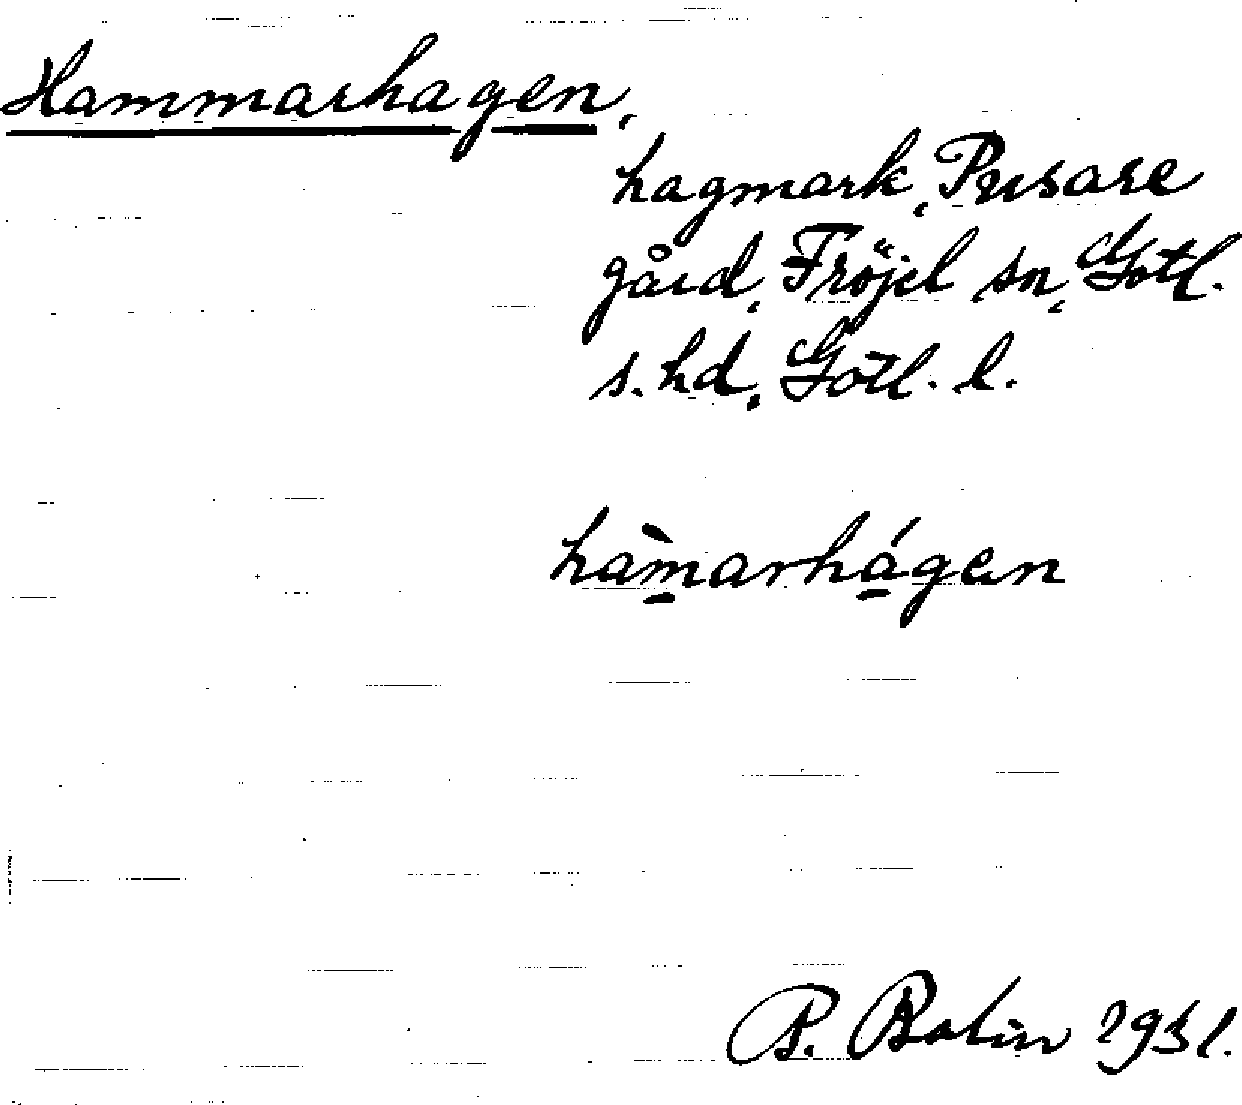 Hammarhagen,
hagmark, Pusare
gård, Fröjel sn, Gotl.
s. hd, Gotl. l.
hàmarhágen
P. Bolin 1931.